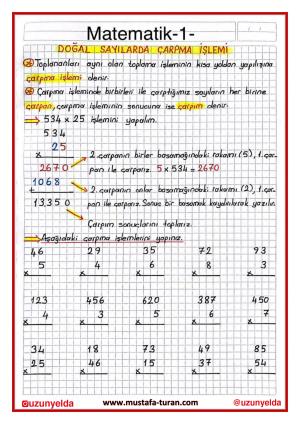 Matematik-1-
DOĞAL SAYILARDA ÇARPMA İŞLEMİ
Toplananları aynı olan toplama işleminin kısa yoldan yapılışına
çarpma işlemi denir.
Çarpma işleminde birbirleri ile çarptığımız sayıların her birine
çarpan, çarpma işleminin sonucuna ise çarpım denir.
534 x 25 işlemini yapalım.
534
x 25
2670
1068
+
13350
2. çarpanın birler basamağındaki rakamı (5), 1. çar-
pan ile çarparız. 5 x 534 = 2670
2. çarpanın onlar basamağındaki rakamı (2), 1. çar-
pan ile çarparız. Sonuç bir basamak kaydırılarak yazılır.
Çarpım sonuçlarını toplarız.
Aşağıdaki çarpma işlemlerini yapınız.
46 29 35 72 93
x 5 x 4 x 6 x 8 x 3
123 456 620 387 450
x 4 x 3 x 5 x 6 x 7
34 18 73 49 85
x 25 x 46 x 15 x 37 x 54
@uzunyelda www.mustafa-turan.com @uzunyelda